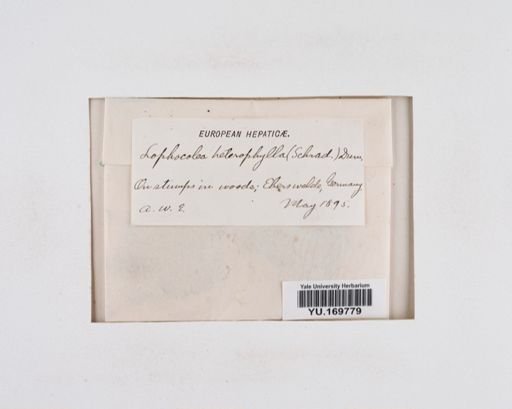 EUROPEAN HEPATICÆ.
Lophocolea heterophylla (Schrad.) Dum.
On stumps in woods; Eberswalde, Germany
A. W. E. May 1895.
Yale University Herbarium
YU.169779